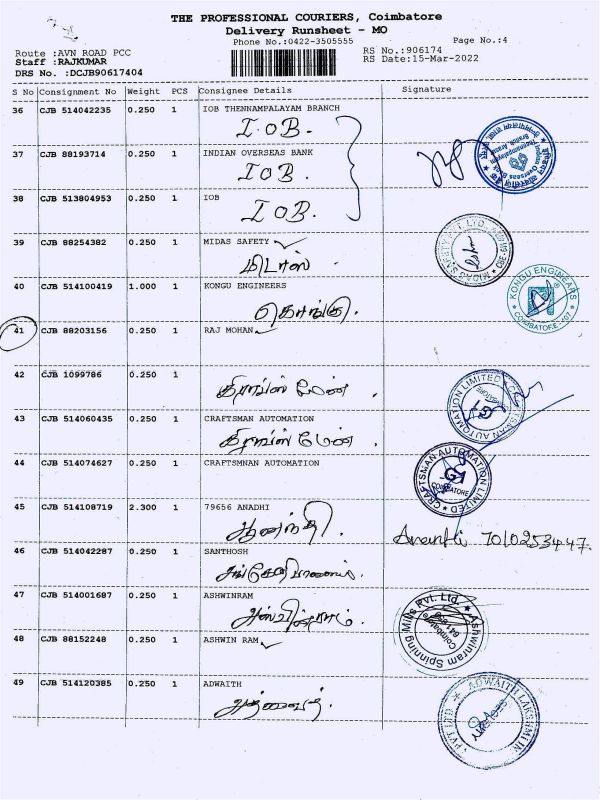 THE PROFESSIONAL COURIERS, Coimbatore
Delivery Runsheet - MO
Phone No.:0422-3505555 Page No.:4
Route :AVN ROAD PCC RS No.:906174
Staff :RAJKUMAR RS Date:15-Mar-2022
DRS No. :DCJB90617404
S No Consignment No Weight PCS Consignee Details Signature
36 CJB 514042235 0.250 1 IOB THENNAMPALAYAM BRANCH
I.O.B.
37 CJB 88193714 0.250 1 INDIAN OVERSEAS BANK
I.O.B.
38 CJB 513804953 0.250 1 IOB
I.O.B.
39 CJB 88254382 0.250 1 MIDAS SAFETY
மிடாஸ்
40 CJB 514100419 1.000 1 KONGU ENGINEERS
கொங்கு.
KONGU ENGINEARS
COIMBATORE
41 CJB 88203156 0.250 1 RAJ MOHAN
42 CJB 1099786 0.250 1
கிராப்ஸ் மேன்
43 CJB 514060435 0.250 1 CRAFTSMAN AUTOMATION
கிராப்ஸ் மேன்
44 CJB 514074627 0.250 1 CRAFTSMNAN AUTOMATION
CRAFTSMAN AUTOMATION LIMITED
COIMBATORE
45 CJB 514108719 2.300 1 79656 ANADHI
ஆனந்தி.
Ananthi 7010253447
46 CJB 514042287 0.250 1 SANTHOSH
47 CJB 514001687 0.250 1 ASHWINRAM
அஸ்வின்ராம்.
Ashwinram Spinning Mills Pvt. Ltd.
48 CJB 88152248 0.250 1 ASHWIN RAM
49 CJB 514120385 0.250 1 ADWAITH
அத்வைத்.
ADWAITH LAKSHMI